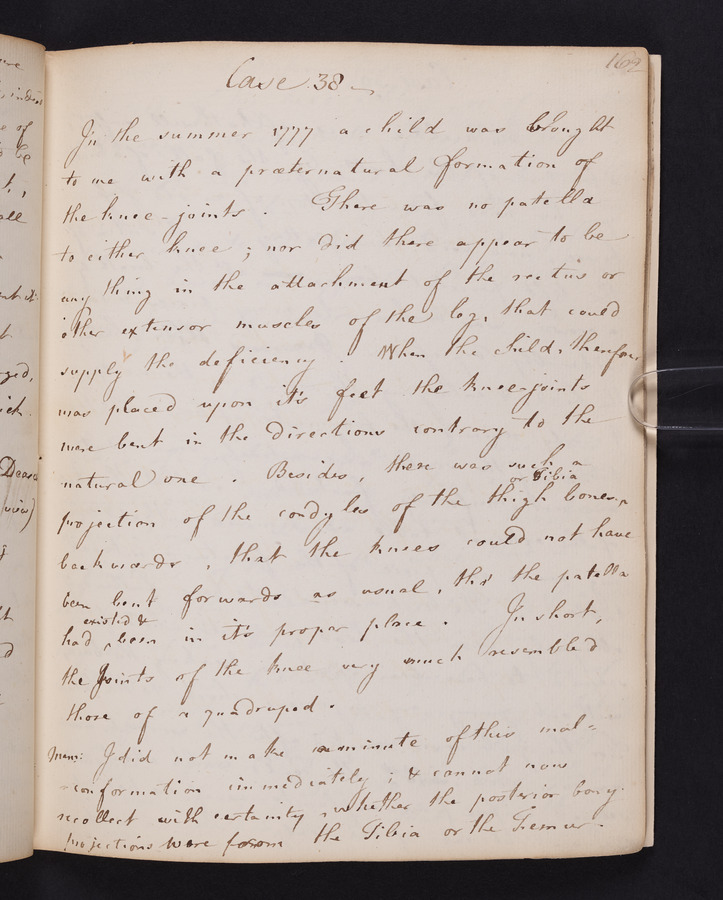 162
Case 38
In the summer 1777 a child was brought
to me with a præternatural formation of
the knee-joints. There was no patella
to either knee; nor did there appear to be
any thing in the attachment of the rectus or
other extensor muscles of the leg, that could
supply the deficiency. When the child, therefore,
was placed upon it's feet the knee-joints
were bent in the directions contrary to the
natural one. Besides, there was such a
or Tibia
projection of the condyles of the thigh bones,
backwards, that the knees could not have
been bent forwards as usual, tho' the patella
existed &
had been in it's proper place. In short,
the Joints of the knee very much resembled
those of a quadruped.
Mem: I did not make a minute of this mal=
=conformation immediately; & cannot now
recollect with certainty, whether the posterior bony
projections were from the Tibia or the Femur.